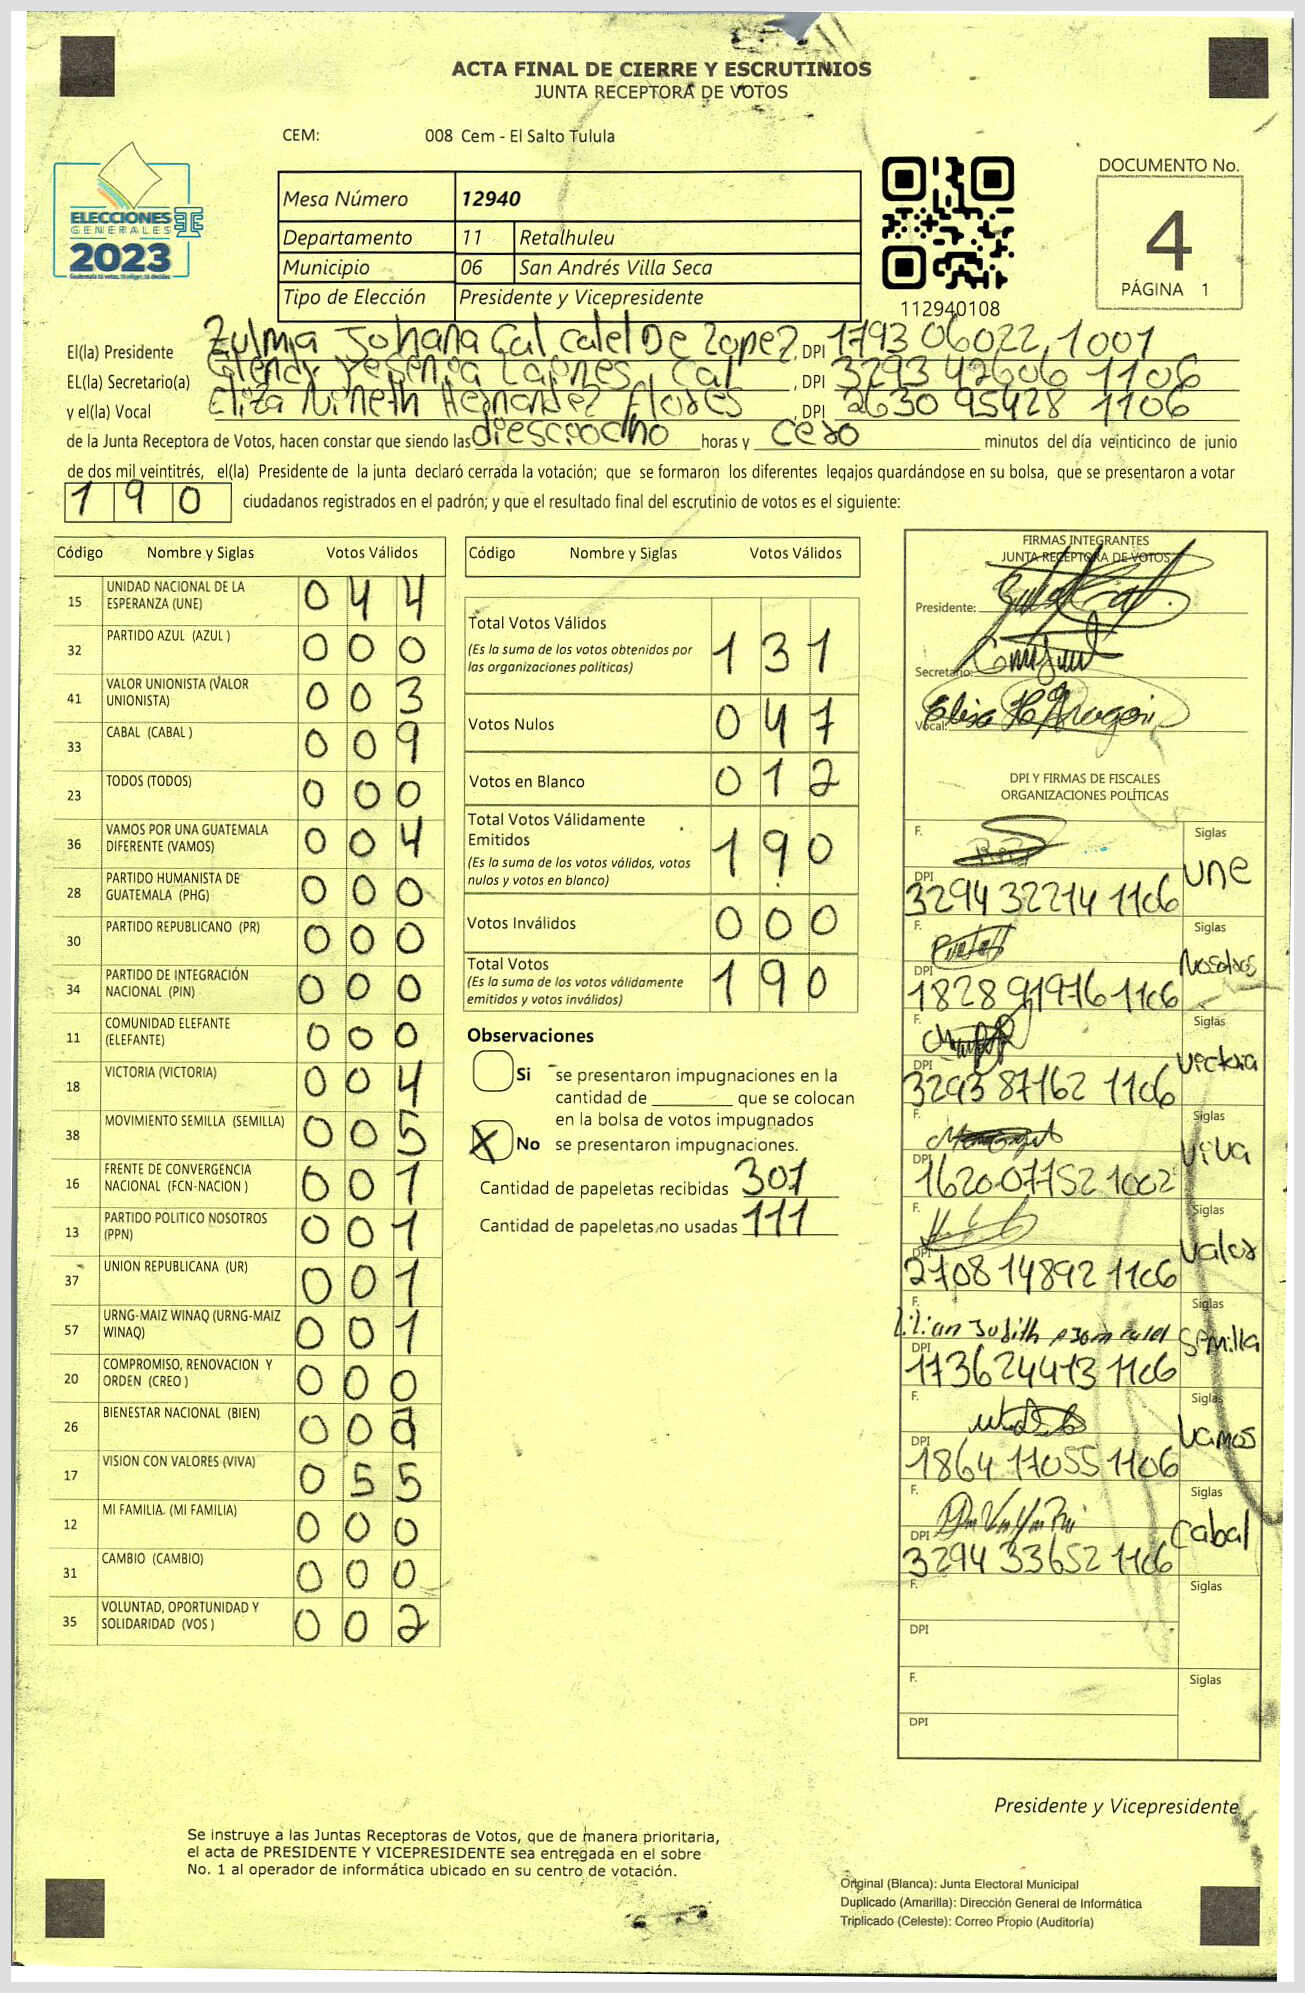 ACTA FINAL DE CIERRE Y ESCRUTINIOS
JUNTA RECEPTORA DE VOTOS
CEM: 008 Cem - El Salto Tulula
DOCUMENTO No.
4
PÁGINA 1
ELECCIONES
GENERALES
2023
Mesa Número 12940
Departamento 11 Retalhuleu
Municipio 06 San Andrés Villa Seca
Tipo de Elección Presidente y Vicepresidente
112940108
El(la) Presidente Zulma Johana Cal Calel De Lopez, DPI 1793 06022 1001
EL(la) Secretario(a) Glendy Yesenia Laines Cal, DPI 3293 42606 1106
y el(la) Vocal Eliza Nineth Hernandez Flores, DPI 2630 95428 1106
de la Junta Receptora de Votos, hacen constar que siendo las diesciocho horas y cero minutos del día veinticinco de junio
de dos mil veintitrés, el(la) Presidente de la junta declaró cerrada la votación; que se formaron los diferentes legajos guardándose en su bolsa, que se presentaron a votar
190 ciudadanos registrados en el padrón; y que el resultado final del escrutinio de votos es el siguiente:
Código Nombre y Siglas Votos Válidos
15 UNIDAD NACIONAL DE LA ESPERANZA (UNE) 0 4 4
32 PARTIDO AZUL (AZUL ) 0 0 0
41 VALOR UNIONISTA (VALOR UNIONISTA) 0 0 3
33 CABAL (CABAL ) 0 0 9
23 TODOS (TODOS) 0 0 0
36 VAMOS POR UNA GUATEMALA DIFERENTE (VAMOS) 0 0 4
28 PARTIDO HUMANISTA DE GUATEMALA (PHG) 0 0 0
30 PARTIDO REPUBLICANO (PR) 0 0 0
34 PARTIDO DE INTEGRACIÓN NACIONAL (PIN) 0 0 0
11 COMUNIDAD ELEFANTE (ELEFANTE) 0 0 0
18 VICTORIA (VICTORIA) 0 0 4
38 MOVIMIENTO SEMILLA (SEMILLA) 0 0 5
16 FRENTE DE CONVERGENCIA NACIONAL (FCN-NACION ) 0 0 1
13 PARTIDO POLITICO NOSOTROS (PPN) 0 0 1
37 UNION REPUBLICANA (UR) 0 0 1
57 URNG-MAIZ WINAQ (URNG-MAIZ WINAQ) 0 0 1
20 COMPROMISO, RENOVACION Y ORDEN (CREO ) 0 0 0
26 BIENESTAR NACIONAL (BIEN) 0 0
17 VISION CON VALORES (VIVA) 0 5 5
12 MI FAMILIA. (MI FAMILIA) 0 0 0
31 CAMBIO (CAMBIO) 0 0 0
35 VOLUNTAD, OPORTUNIDAD Y SOLIDARIDAD (VOS ) 0 0 2
Código Nombre y Siglas Votos Válidos
Total Votos Válidos 1 3 1
(Es la suma de los votos obtenidos por
las organizaciones políticas)
Votos Nulos 0 4 7
Votos en Blanco 0 1 2
Total Votos Válidamente
Emitidos 1 9 0
(Es la suma de los votos válidos, votos
nulos y votos en blanco)
Votos Inválidos 0 0 0
Total Votos 1 9 0
(Es la suma de los votos válidamente
emitidos y votos inválidos)
Observaciones
Si se presentaron impugnaciones en la
cantidad de ________ que se colocan
en la bolsa de votos impugnados
X No se presentaron impugnaciones.
Cantidad de papeletas recibidas 301
Cantidad de papeletas no usadas 111
FIRMAS INTEGRANTES
JUNTA RECEPTORA DE VOTOS
Presidente:
Secretario:
Vocal:
DPI Y FIRMAS DE FISCALES
ORGANIZACIONES POLÍTICAS
F. Siglas
DPI 3294 32214 1106 UNE
F. Siglas
DPI 1828 91976 1106 Nosotros
F. Siglas
DPI 3293 87162 1106 Victoria
F. Siglas
DPI 1620 07752 1002 VIVA
F. Siglas
DPI 2708 14892 1106 Valor
F. Lilian Judith Siglas
DPI 1736 24413 1106 Semilla
F. Siglas
DPI 1864 17055 1106 Vamos
F. Siglas
DPI 3294 33652 1106 Cabal
F. Siglas
DPI
F. Siglas
DPI
Presidente y Vicepresidente
Se instruye a las Juntas Receptoras de Votos, que de manera prioritaria,
el acta de PRESIDENTE Y VICEPRESIDENTE sea entregada en el sobre
No. 1 al operador de informática ubicado en su centro de votación.
Original (Blanca): Junta Electoral Municipal
Duplicado (Amarilla): Dirección General de Informática
Triplicado (Celeste): Correo Propio (Auditoría)